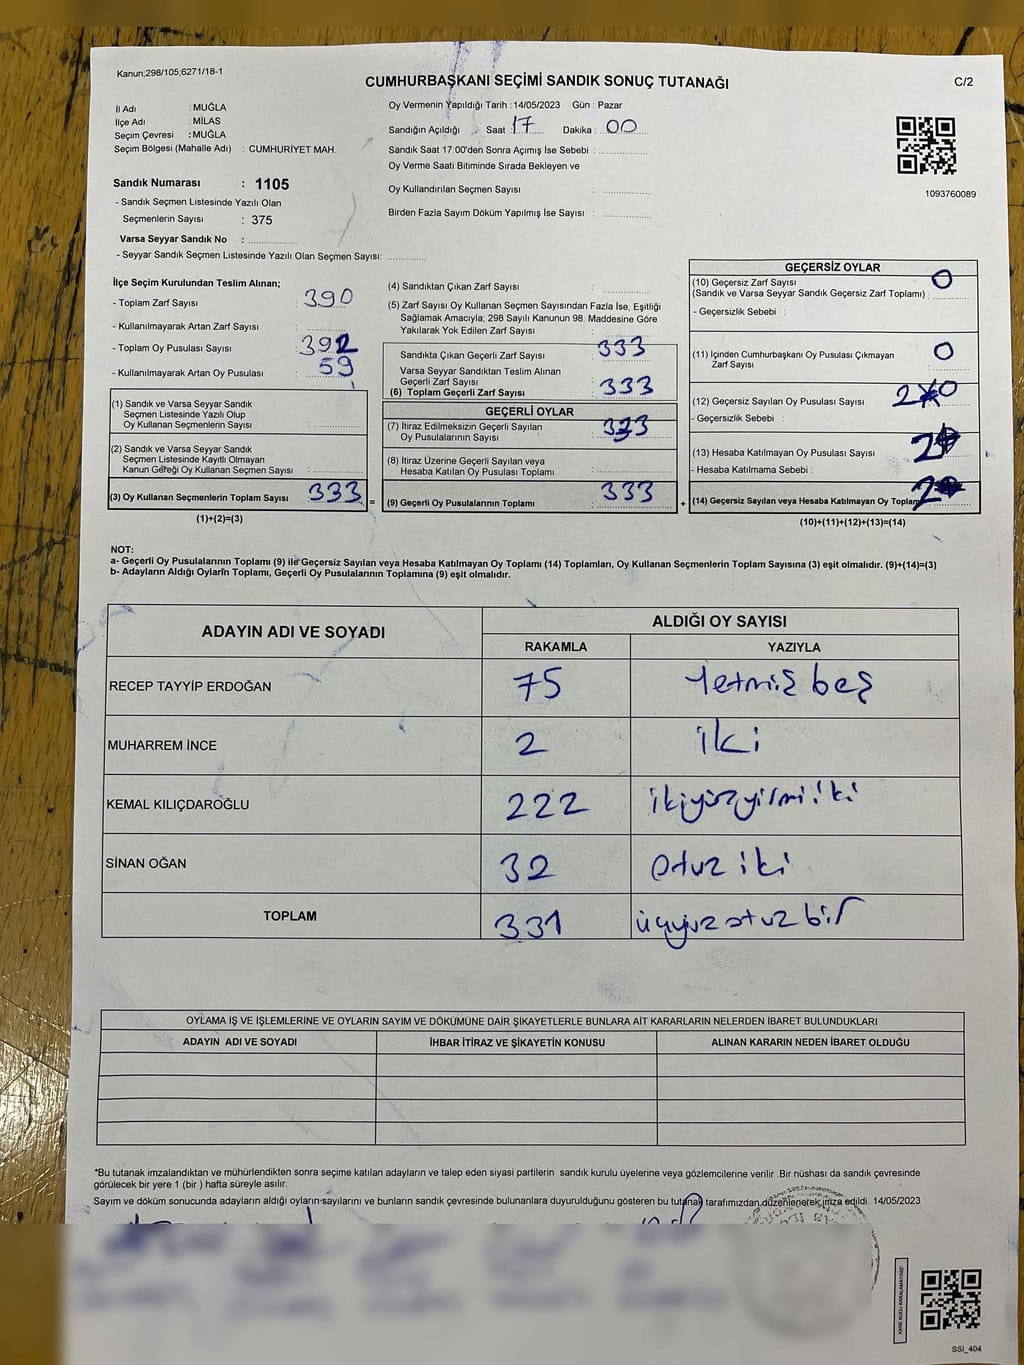 Kanun;298/105;6271/18-1
CUMHURBAŞKANI SEÇİMİ SANDIK SONUÇ TUTANAĞI
C/2
İl Adı : MUĞLA
İlçe Adı : MİLAS
Seçim Çevresi : MUĞLA
Seçim Bölgesi (Mahalle Adı) : CUMHURİYET MAH.
Sandık Numarası : 1105
- Sandık Seçmen Listesinde Yazılı Olan
Seçmenlerin Sayısı : 375
Varsa Seyyar Sandık No :
- Seyyar Sandık Seçmen Listesinde Yazılı Olan Seçmen Sayısı:
Oy Vermenin Yapıldığı Tarih :14/05/2023 Gün : Pazar
Sandığın Açıldığı : Saat 17 Dakika : 00
Sandık Saat 17:00'den Sonra Açımış İse Sebebi :
Oy Verme Saati Bitiminde Sırada Bekleyen ve
Oy Kullandırılan Seçmen Sayısı :
Birden Fazla Sayım Döküm Yapılmış İse Sayısı :
1093760089
İlçe Seçim Kurulundan Teslim Alınan;
- Toplam Zarf Sayısı : 390
- Kullanılmayarak Artan Zarf Sayısı :
- Toplam Oy Pusulası Sayısı : 392
- Kullanılmayarak Artan Oy Pusulası : 59
(1) Sandık ve Varsa Seyyar Sandık
Seçmen Listesinde Yazılı Olup
Oy Kullanan Seçmenlerin Sayısı :
(2) Sandık ve Varsa Seyyar Sandık
Seçmen Listesinde Kayıtlı Olmayan
Kanun Gereği Oy Kullanan Seçmen Sayısı :
(3) Oy Kullanan Seçmenlerin Toplam Sayısı : 333 =
(1)+(2)=(3)
(4) Sandıktan Çıkan Zarf Sayısı :
(5) Zarf Sayısı Oy Kullanan Seçmen Sayısından Fazla İse, Eşitliği
Sağlamak Amacıyla; 298 Sayılı Kanunun 98. Maddesine Göre
Yakılarak Yok Edilen Zarf Sayısı :
Sandıkta Çıkan Geçerli Zarf Sayısı : 333
Varsa Seyyar Sandıktan Teslim Alınan
Geçerli Zarf Sayısı :
(6) Toplam Geçerli Zarf Sayısı : 333
GEÇERLİ OYLAR
(7) İtiraz Edilmeksizin Geçerli Sayılan
Oy Pusulalarının Sayısı :
(8) İtiraz Üzerine Geçerli Sayılan veya
Hesaba Katılan Oy Pusulası Toplamı :
(9) Geçerli Oy Pusulalarının Toplamı : 333 +
GEÇERSİZ OYLAR
(10) Geçersiz Zarf Sayısı
(Sandık ve Varsa Seyyar Sandık Geçersiz Zarf Toplamı) : 0
- Geçersizlik Sebebi :
(11) İçinden Cumhurbaşkanı Oy Pusulası Çıkmayan
Zarf Sayısı : 0
(12) Geçersiz Sayılan Oy Pusulası Sayısı :
- Geçersizlik Sebebi :
(13) Hesaba Katılmayan Oy Pusulası Sayısı : 2
- Hesaba Katılmama Sebebi :
(14) Geçersiz Sayılan veya Hesaba Katılmayan Oy Toplam 2
(10)+(11)+(12)+(13)=(14)
NOT:
a- Geçerli Oy Pusulalarının Toplamı (9) ile Geçersiz Sayılan veya Hesaba Katılmayan Oy Toplamı (14) Toplamları, Oy Kullanan Seçmenlerin Toplam Sayısına (3) eşit olmalıdır. (9)+(14)=(3)
b- Adayların Aldığı Oyların Toplamı, Geçerli Oy Pusulalarının Toplamına (9) eşit olmalıdır.
ADAYIN ADI VE SOYADI ALDIĞI OY SAYISI
RAKAMLA YAZIYLA
RECEP TAYYİP ERDOĞAN 75 Yetmiş beş
MUHARREM İNCE 2 iki
KEMAL KILIÇDAROĞLU 222 ikiyüzyirmi iki
SİNAN OĞAN 32 otuz iki
TOPLAM 331 üçyüz otuz bir
OYLAMA İŞ VE İŞLEMLERİNE VE OYLARIN SAYIM VE DÖKÜMÜNE DAİR ŞİKAYETLERLE BUNLARA AİT KARARLARIN NELERDEN İBARET BULUNDUKLARI
ADAYIN ADI VE SOYADI İHBAR İTİRAZ VE ŞİKAYETİN KONUSU ALINAN KARARIN NEDEN İBARET OLDUĞU
*Bu tutanak imzalandıktan ve mühürlendikten sonra seçime katılan adayların ve talep eden siyasi partilerin sandık kurulu üyelerine veya gözlemcilerine verilir .Bir nüshası da sandık çevresinde
görülecek bir yere 1 (bir ) hafta süreyle asılır.
Sayım ve döküm sonucunda adayların aldığı oyların sayılarını ve bunların sandık çevresinde bulunanlara duyurulduğunu gösteren bu tutanak tarafımızdan düzenlenerek imza edildi. 14/05/2023
KARE KODU KARALAMAYINIZ!
SSI_404